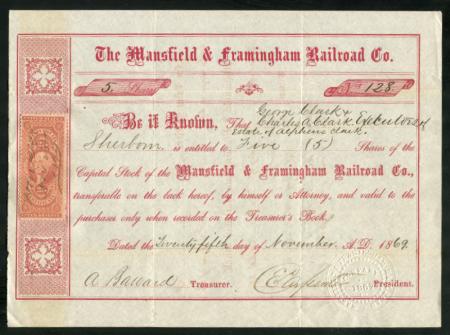 The Mansfield & Framingham Railroad Co.
5 128
George Clark &
Be it Known, That Charles A. Clark Executors of
Estate of Alpheus Clark.
Sherborn is entitled to Five (5) Shares of the
Capital Stock of the Mansfield & Framingham Railroad Co.,
transferable on the back hereof, by himself or Attorney, and valid to the
purchasers only when recorded on the Treasurer's Books.
Dated the Twenty fifth day of November A.D. 1869.
A Ballard Treasurer. President.